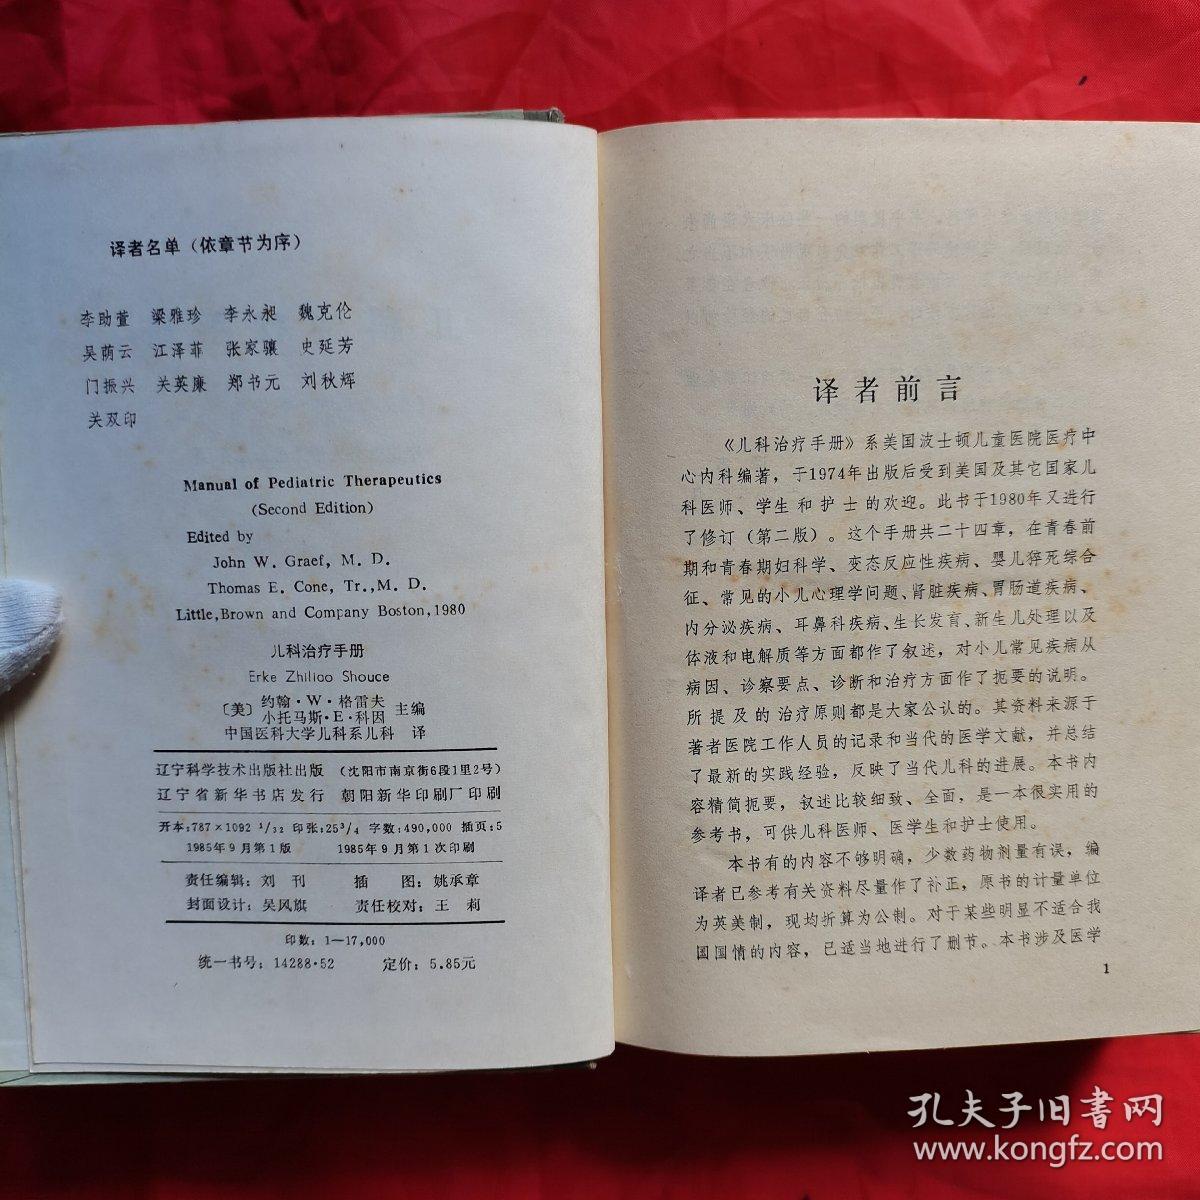 译者名单（依章节为序）
李助萱 梁雅珍 李永昶 魏克伦
吴荫云 江泽菲 张家骧 史延芳
门振兴 关英廉 郑书元 刘秋辉
关双印
Manual of Pediatric Therapeutics
(Second Edition)
Edited by
John W. Graef, M. D.
Thomas E. Cone, Tr.,M. D.
Little,Brown and Company Boston,1980
儿科治疗手册
Erke Zhiliao Shouce
〔美〕约翰·W·格雷夫
小托马斯·E·科因 主编
中国医科大学儿科系儿科 译
辽宁科学技术出版社出版 （沈阳市南京街6段1里2号）
辽宁省新华书店发行 朝阳新华印刷厂印刷
开本:787×1092 1/32 印张:25 3/4 字数:490,000 插页:5
1985年9月第1版 1985年9月第1次印刷
责任编辑：刘 刊 插 图：姚承章
封面设计：吴风旗 责任校对：王 莉
印数：1—17,000
统一书号：14288·52 定价：5.85元
译者前言
《儿科治疗手册》系美国波士顿儿童医院医疗中
心内科编著，于1974年出版后受到美国及其它国家儿
科医师、学生和护士的欢迎。此书于1980年又进行
了修订（第二版）。这个手册共二十四章，在青春前
期和青春期妇科学、变态反应性疾病、婴儿猝死综合
征、常见的小儿心理学问题、肾脏疾病、胃肠道疾病、
内分泌疾病、耳鼻科疾病、生长发育、新生儿处理以及
体液和电解质等方面都作了叙述，对小儿常见疾病从
病因、诊察要点、诊断和治疗方面作了扼要的说明。
所提及的治疗原则都是大家公认的。其资料来源于
著者医院工作人员的记录和当代的医学文献，并总结
了最新的实践经验，反映了当代儿科的进展。本书内
容精简扼要，叙述比较细致、全面，是一本很实用的
参考书，可供儿科医师、医学生和护士使用。
本书有的内容不够明确，少数药物剂量有误，编
译者已参考有关资料尽量作了补正，原书的计量单位
为英美制，现均折算为公制。对于某些明显不适合我
国国情的内容，已适当地进行了删节。本书涉及医学
1
孔夫子旧书网
www.kongfz.com